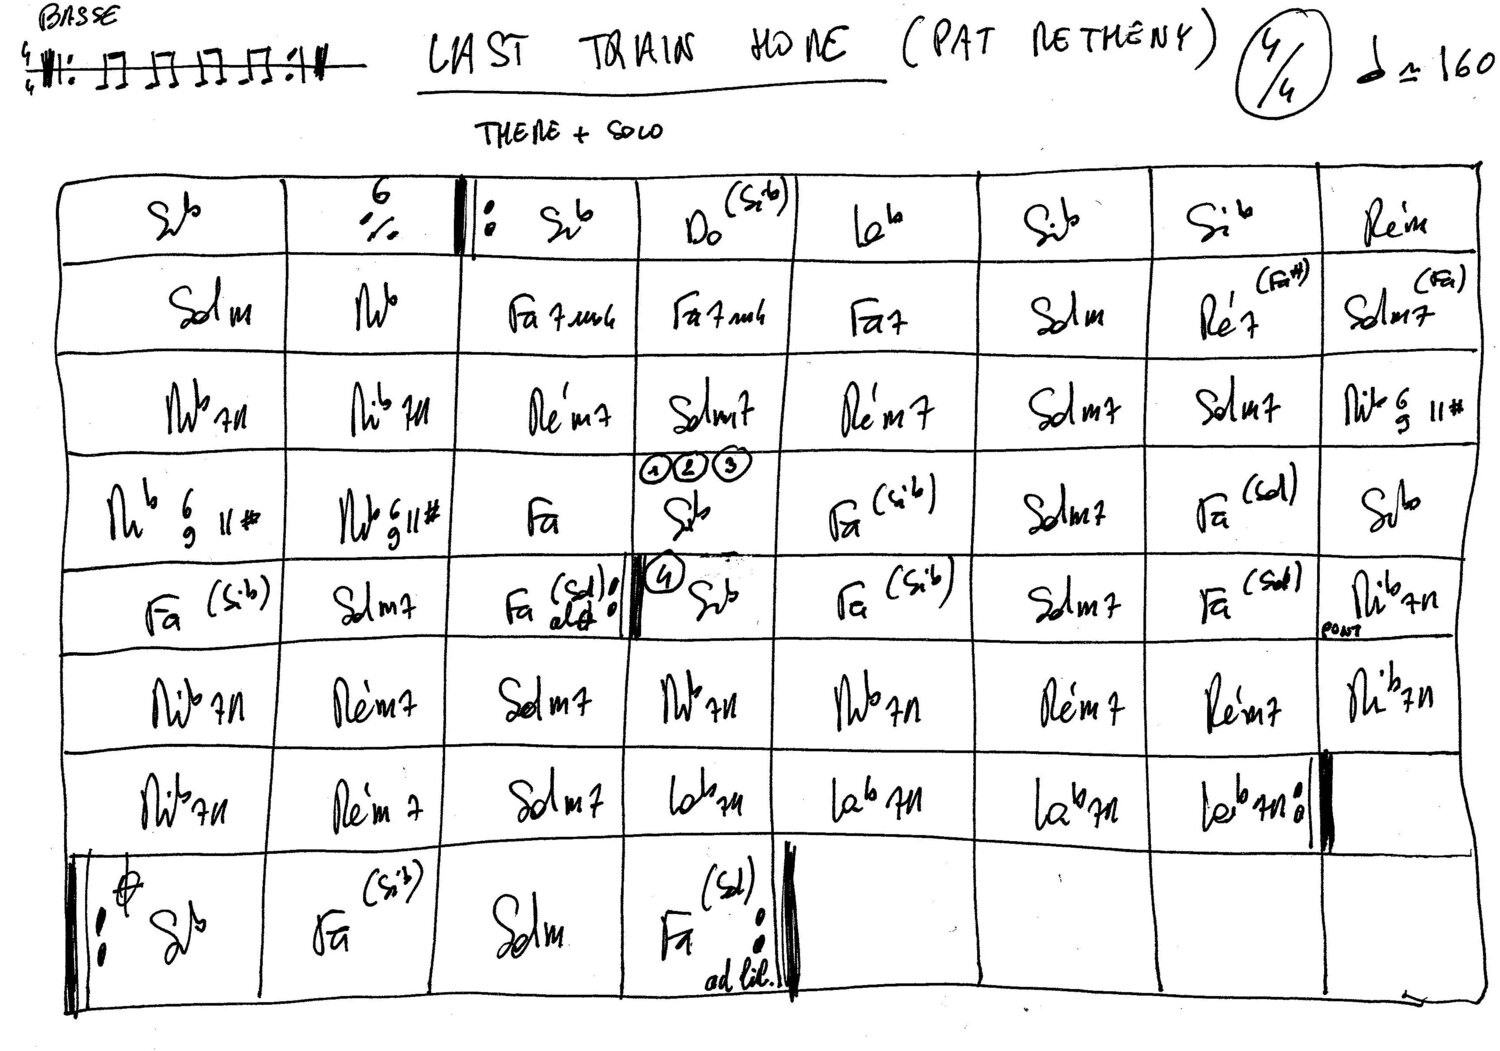 BASSE
4/4 LAST TRAIN HOME (PAT METHENY) 4/4 ≃ 160
THEME + SOLO
Sib 6 ٪ Sib Do (Sib) Lab Sib Sib Rém
Solm Mib Fa7sus4 Fa7sus4 Fa7 Solm Ré7 (Fa#) Solm7 (Fa)
Mib7M Mib7M Rém7 Solm7 Rém7 Solm7 Solm7 Mib 6 9 11#
1 2 3
Mib 6 9 11# Mib 6 9 11# Fa Sib Fa (Sib) Solm7 Fa (Sol) Sib
Fa (Sib) Solm7 Fa (Sol) 4 Sib Fa (Sib) Solm7 Fa (Sol) Mib7M
PONT
Mib7M Rém7 Solm7 Mib7M Mib7M Rém7 Rém7 Mib7M
Mib7M Rém7 Solm7 Lab7M Lab7M Lab7M Lab7M
Sib Fa (Sib) Solm Fa (Sol)
ad lib.